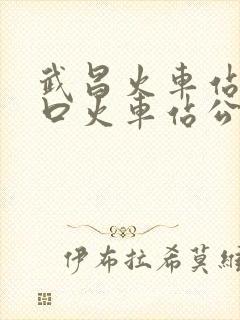 武昌火車佔
口火車佔公
伊布拉希莫維